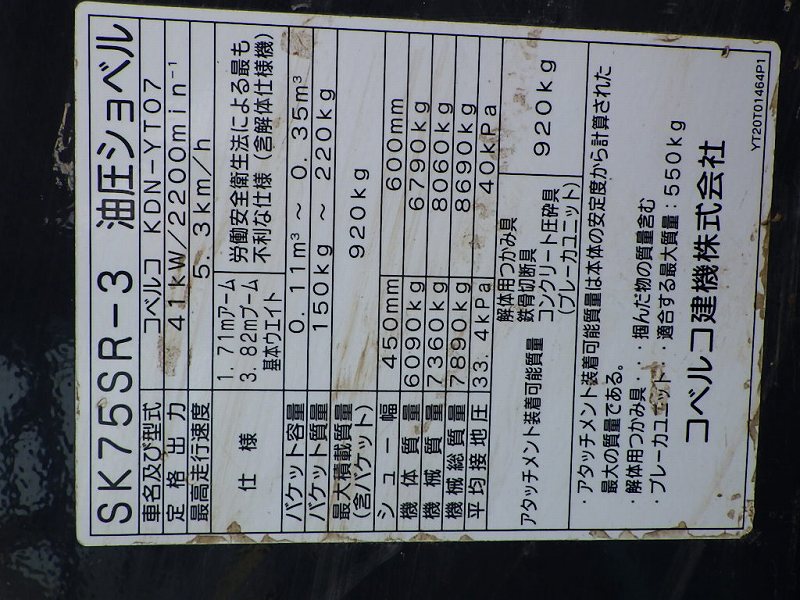 SK75SR-3 油圧ショベル
車名及び型式 コベルコ KDN-YT07
定格出力 41kW/2200min⁻¹
最高走行速度 5.3km/h
仕様 1.71mアーム
3.82mブーム
基本ウエイト
労働安全衛生法による最も
不利な仕様(含解体仕様機)
バケット容量 0.11m³ ~ 0.35m³
バケット質量 150kg ~ 220kg
最大積載質量
(含バケット) 920kg
シュー幅 450mm 600mm
機体質量 6090kg 6790kg
機械質量 7360kg 8060kg
機械総質量 7890kg 8690kg
平均接地圧 33.4kPa 40kPa
アタッチメント装着可能質量
解体用つかみ具
鉄骨切断具
コンクリート圧砕具
(ブレーカユニット)
920kg
・アタッチメント装着可能質量は本体の安定度から計算された
最大の質量である。
・解体用つかみ具・・・掴んだ物の質量含む
・ブレーカユニット・・適合する最大質量:550kg
コベルコ建機株式会社
YT20T01464P1